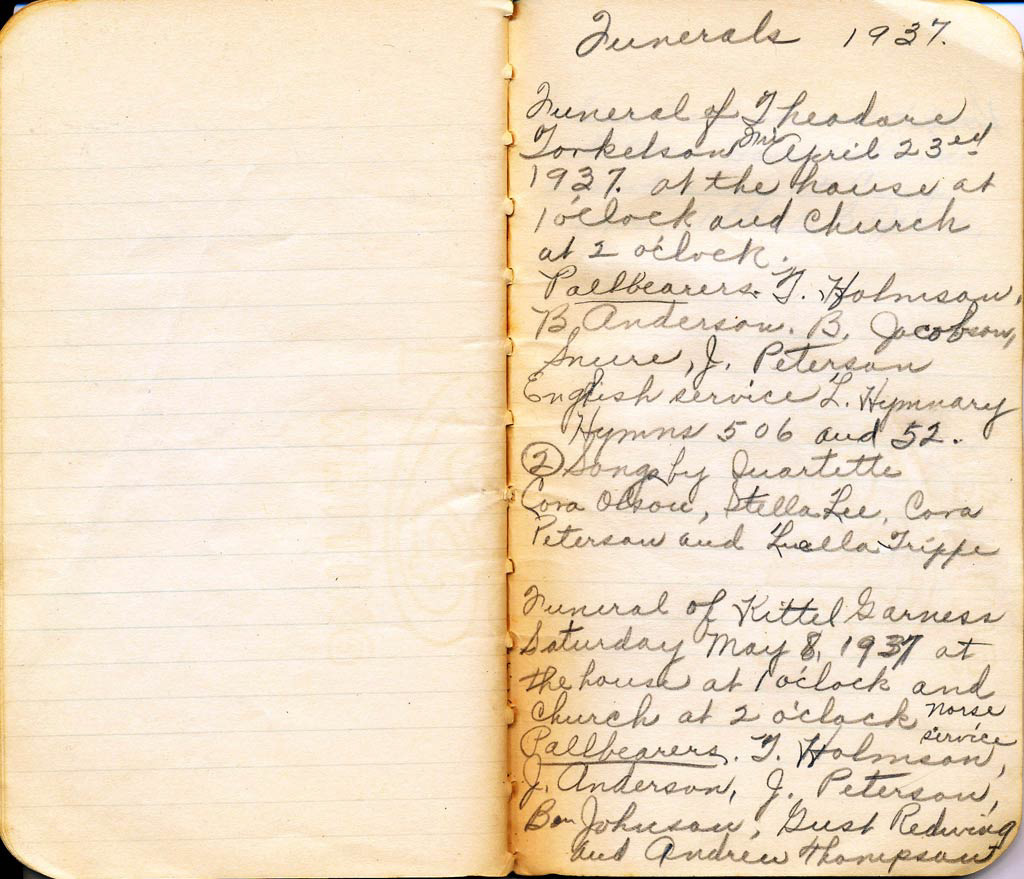 Funerals 1937.
Funeral of Theodore
Torkelson Fri April 23ed
1937. at the house at
1 o'clock and church
at 2 o'clock.
Pallbearers. T. Holmson,
B. Anderson. B. Jacobson,
Snure, J. Peterson
English service L. Hymnary
Hymns 506 and 52.
2 Songs by Quartette
Cora Olson, Stella Lee, Cora
Peterson and Luella Trippe
Funeral of Kittel Garness
Saturday May 8, 1937 at
the house at 1 o'clock and
church at 2 o'clock Norse
service
Pallbearers. T. Holmson,
J. Anderson, J. Peterson,
Ben Johnson, Gust Redwing
and Andrew Thompson